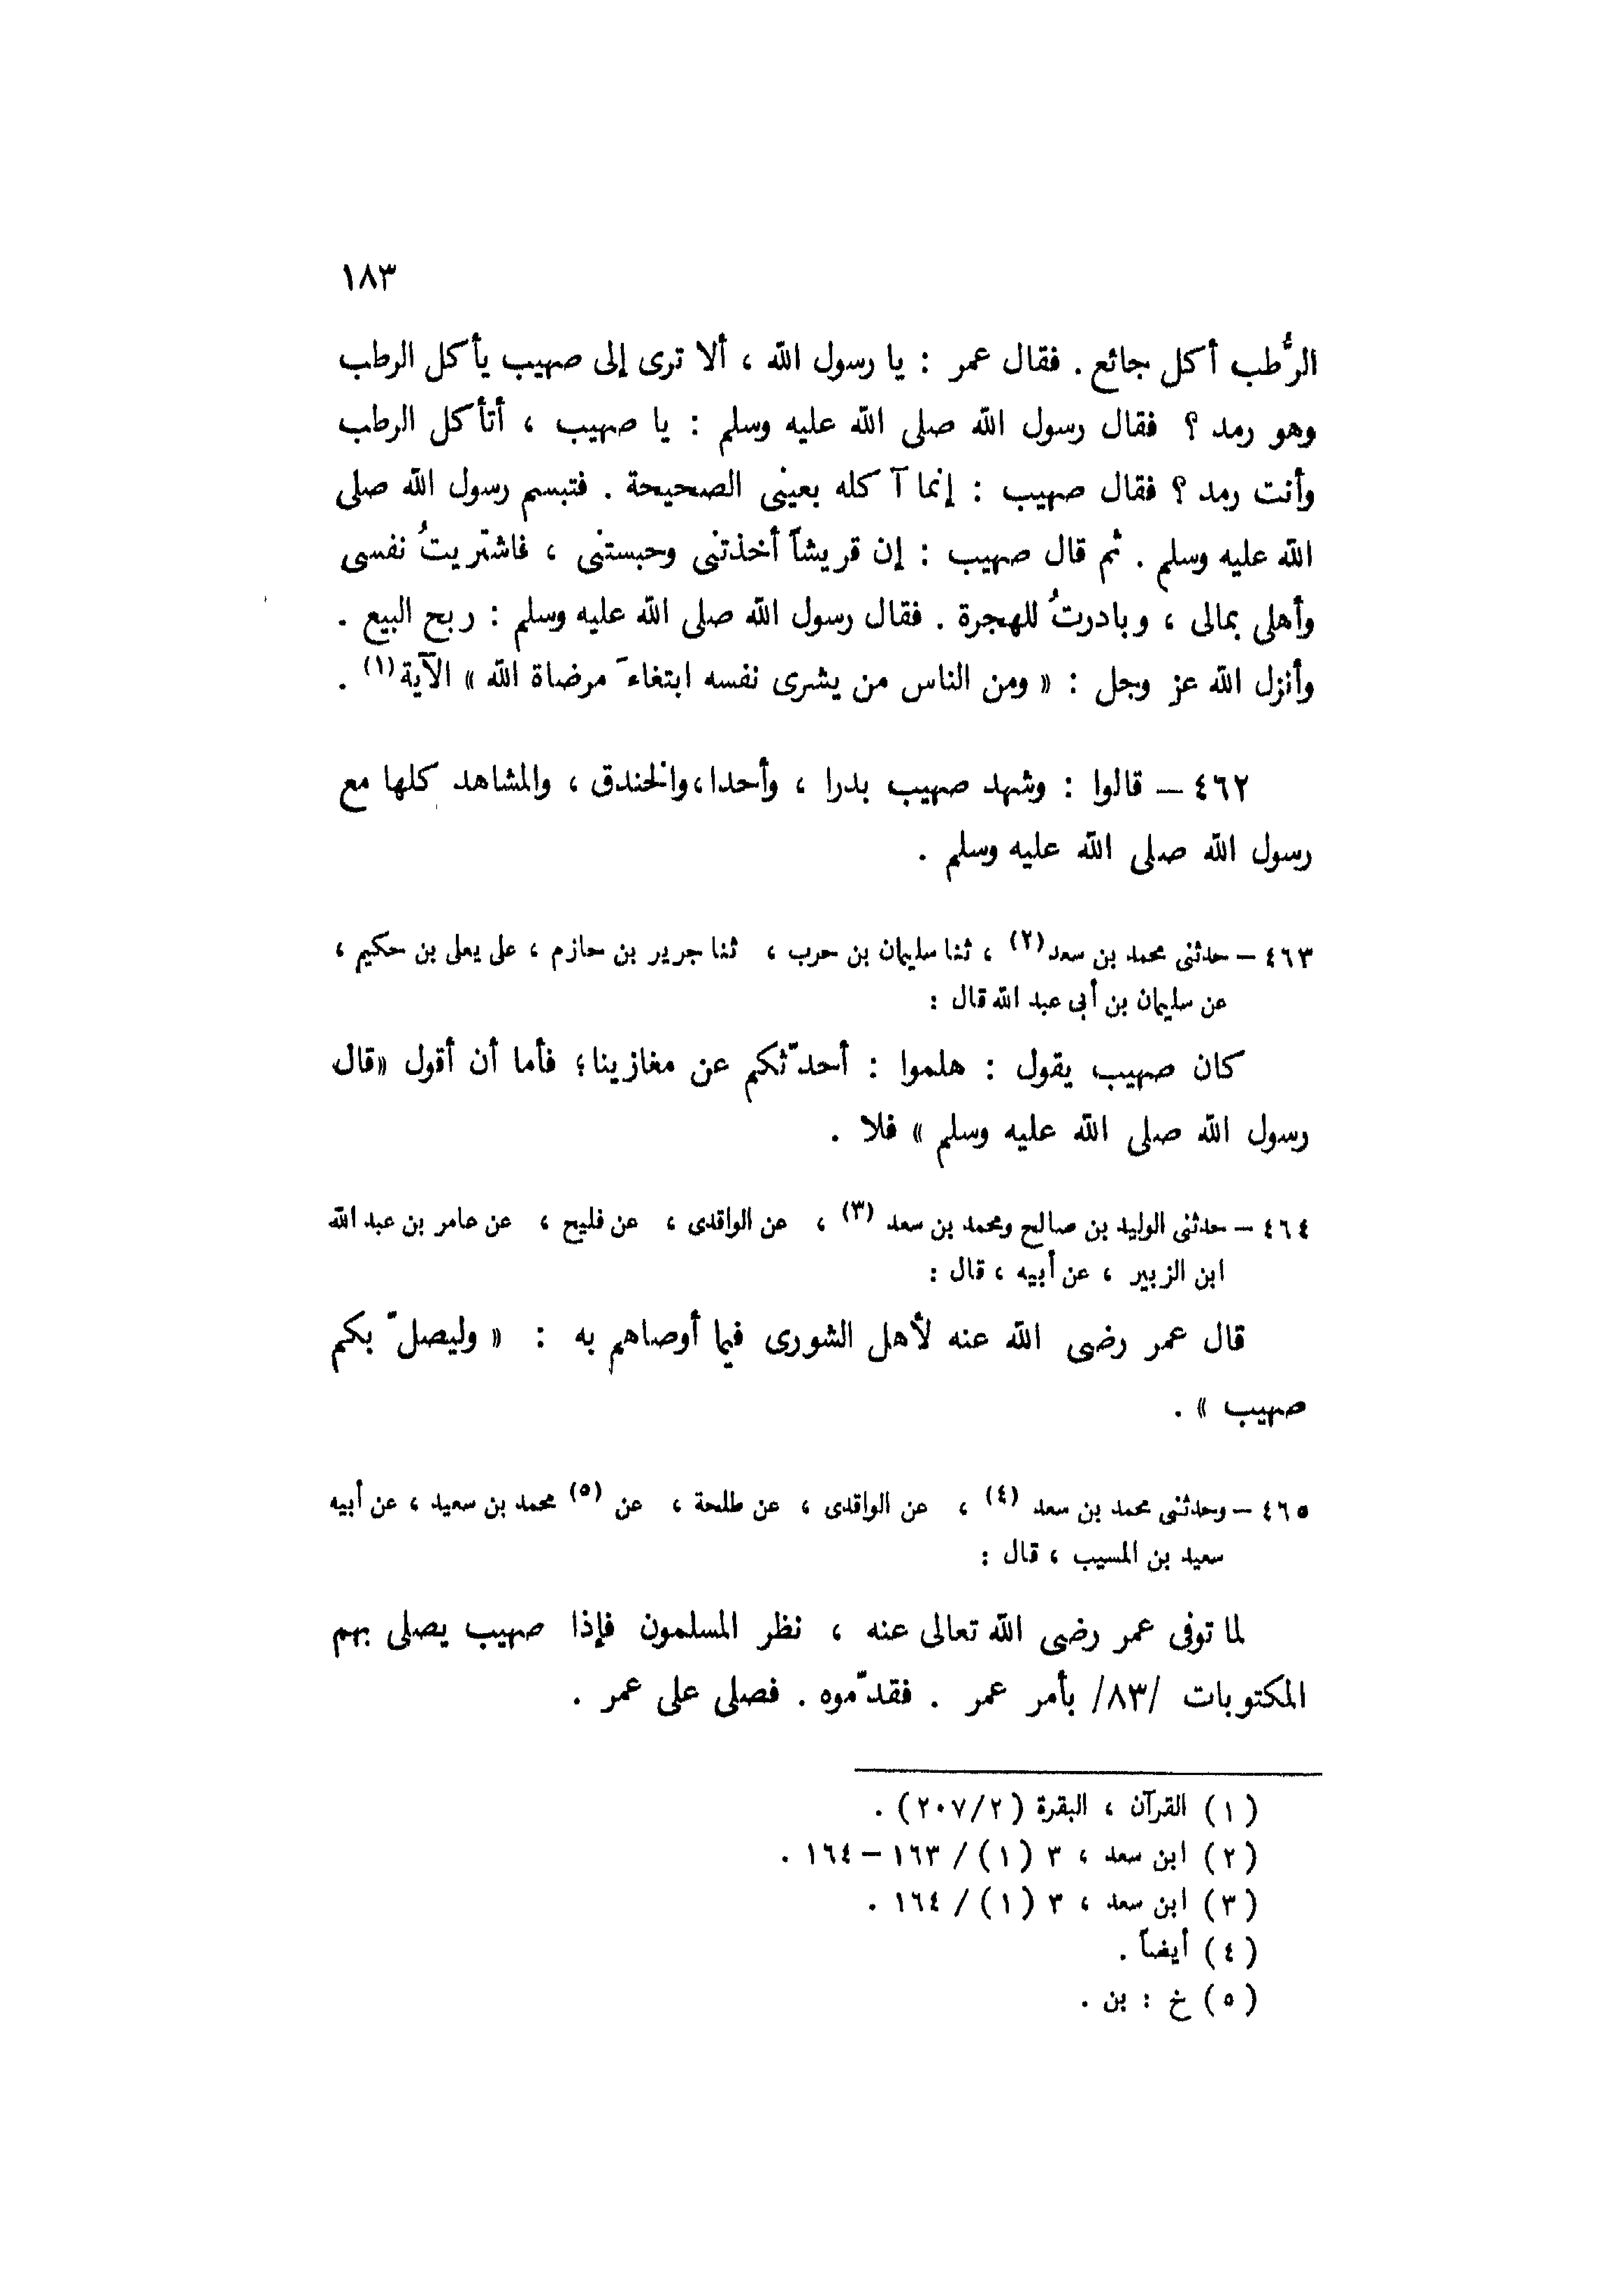 ١٨٣
الرُّطب أكل جائع. فقال عمر : يا رسول الله ، ألا ترى إلى صهيب يأكل الرطب
وهو رمد ؟ فقال رسول الله صلى الله عليه وسلم : يا صهيب ، أتأكل الرطب
وأنت رمد ؟ فقال صهيب : إنما آكله بعينى الصحيحة . فتبسم رسول الله صلى
الله عليه وسلم . ثم قال صهيب : إن قريشاً أخذتنى وحبستنى ، فاشتريتُ نفسى
وأهلى بمالى ، وبادرتُ للهجرة . فقال رسول الله صلى الله عليه وسلم : ربح البيع .
وأنزل الله عز وجل : « ومن الناس من يشرى نفسه ابتغاءَ مرضاة الله » الآية(١) .
٤٦٢ – قالوا : وشهد صهيب بدرا ، وأحدا،والخندق ، والمشاهد كلها مع
رسول الله صلى الله عليه وسلم .
٤٦٣ – حدثنى محمد بن سعد(٢) ، ثنا سليمان بن حرب ، ثنا جرير بن حازم ، على يعلى بن حكيم ،
عن سليمان بن أبى عبد الله قال :
كان صهيب يقول : هلموا : أحدّثكم عن مغازينا؛ فأما أن أقول «قال
رسول الله صلى الله عليه وسلم » فلا .
٤٦٤ – حدثنى الوليد بن صالح ومحمد بن سعد (٣) ، عن الواقدى ، عن فليح ، عن عامر بن عبد الله
ابن الزبير ، عن أبيه ، قال :
قال عمر رضى الله عنه لأهل الشورى فيما أوصاهم به : « وليصلّ بكم
صهيب » .
٤٦٥ – وحدثنى محمد بن سعد (٤) ، عن الواقدى ، عن طلحة ، عن (٥) محمد بن سعيد ، عن أبيه
سعيد بن المسيب ، قال :
لما توفى عمر رضى الله تعالى عنه ، نظر المسلمون فإذا صهيب يصلى بهم
المكتوبات /٨٣/ بأمر عمر . فقدّموه . فصلى على عمر .
(١) القرآن ، البقرة (٢٠٧/٢) .
(٢) ابن سعد ، ٣ (١) / ١٦٣ – ١٦٤ .
(٣) ابن سعد ، ٣ (١) / ١٦٤ .
(٤) أيضاً .
(٥) خ : بن .